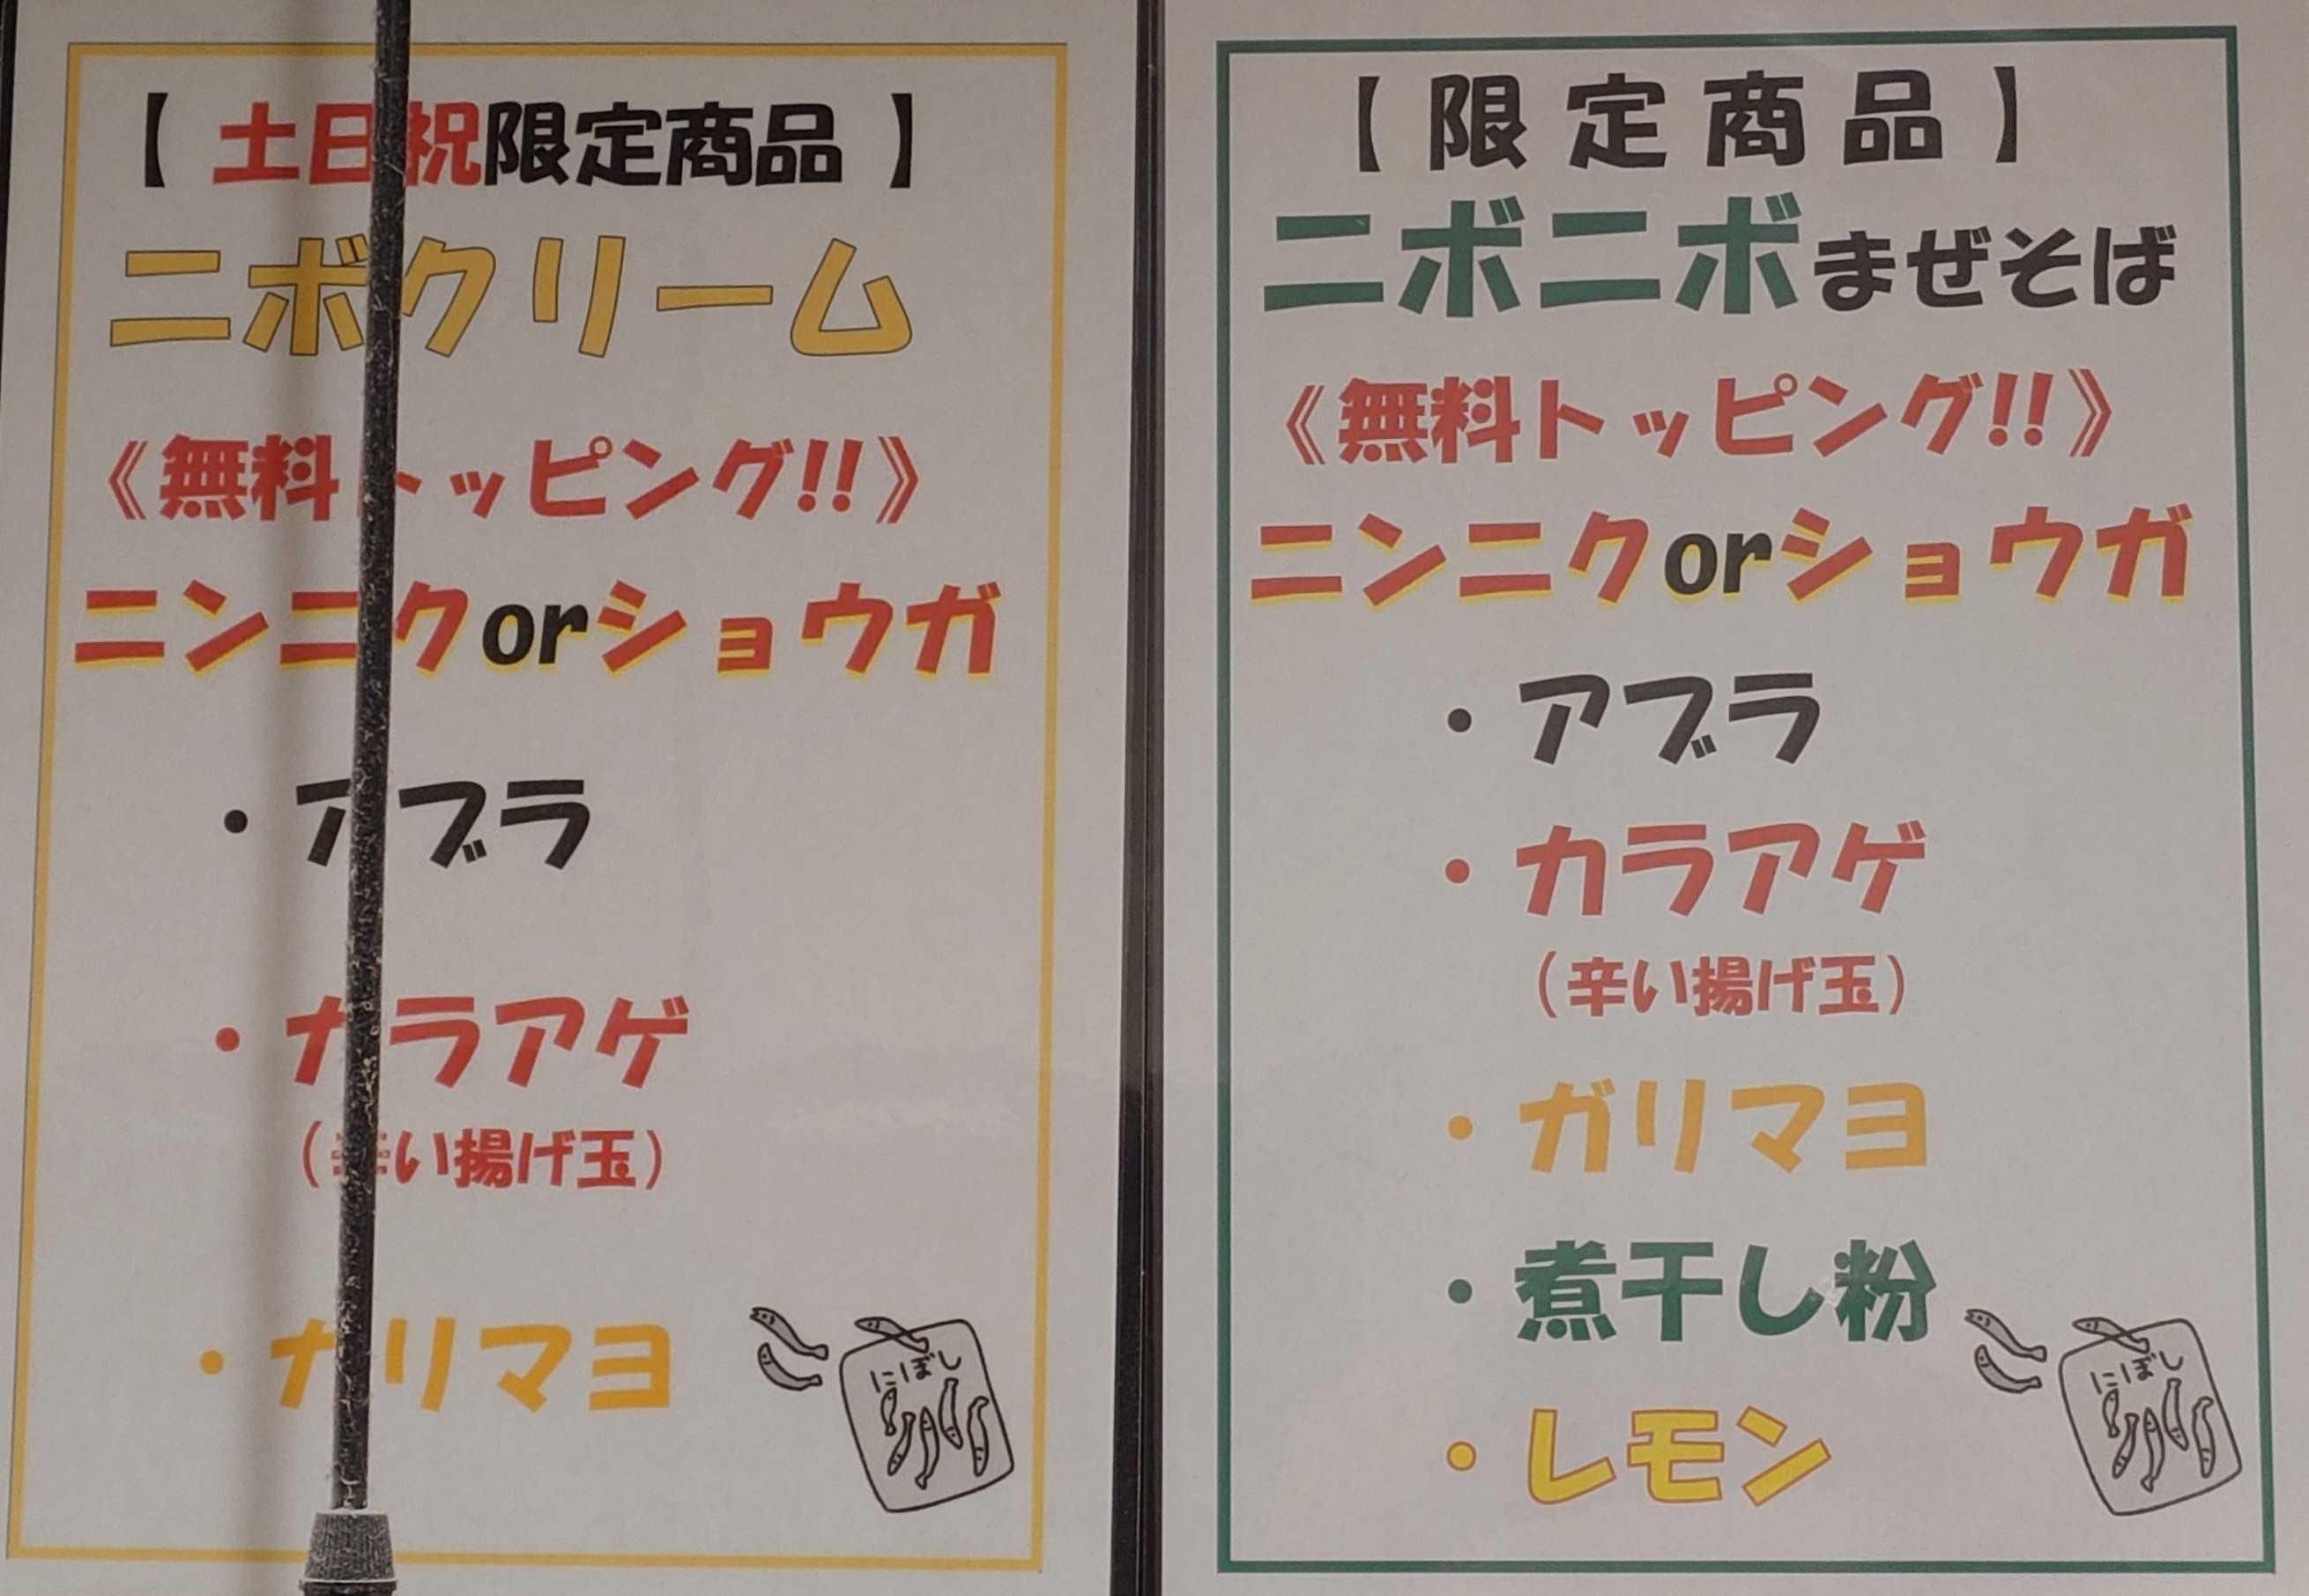 【土日祝限定商品】
ニボクリーム
《無料トッピング!!》
ニンニクorショウガ
・アブラ
・カラアゲ
(辛い揚げ玉)
・ガリマヨ
にぼし
【限定商品】
ニボニボまぜそば
《無料トッピング!!》
ニンニクorショウガ
・アブラ
・カラアゲ
(辛い揚げ玉)
・ガリマヨ
・煮干し粉
・レモン
にぼし